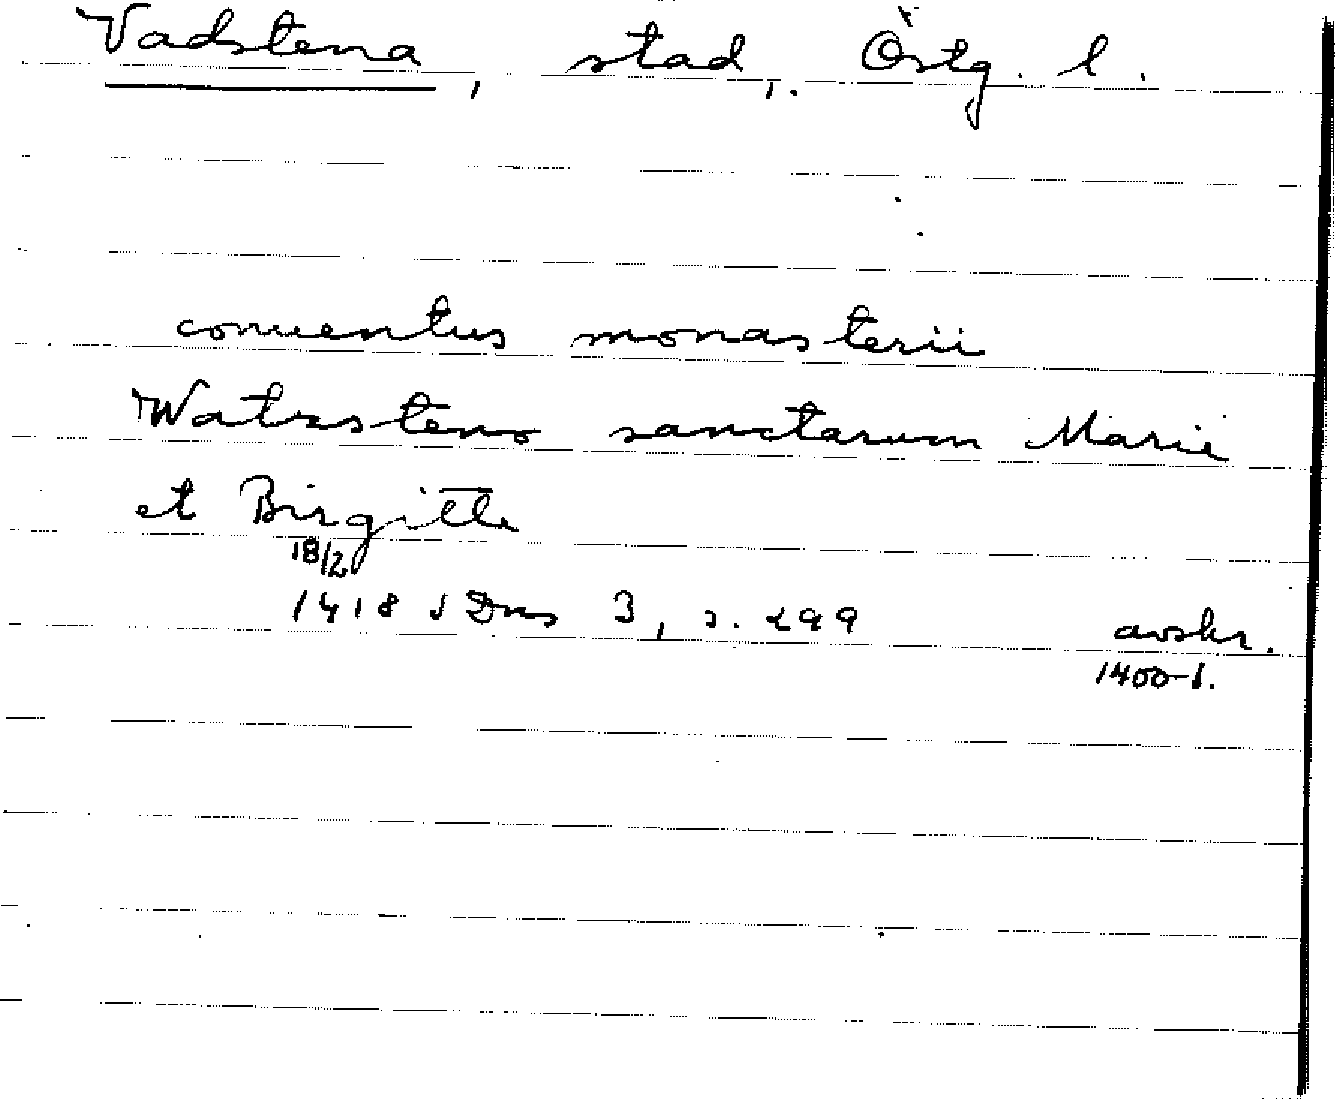 Vadstena, stad, Östg. l.
conuentus monasterii
Watzsteno sanctarum Marie
et Birgitte
18/2
1418 SDns 3, s. 299 avskr.
1400-t.